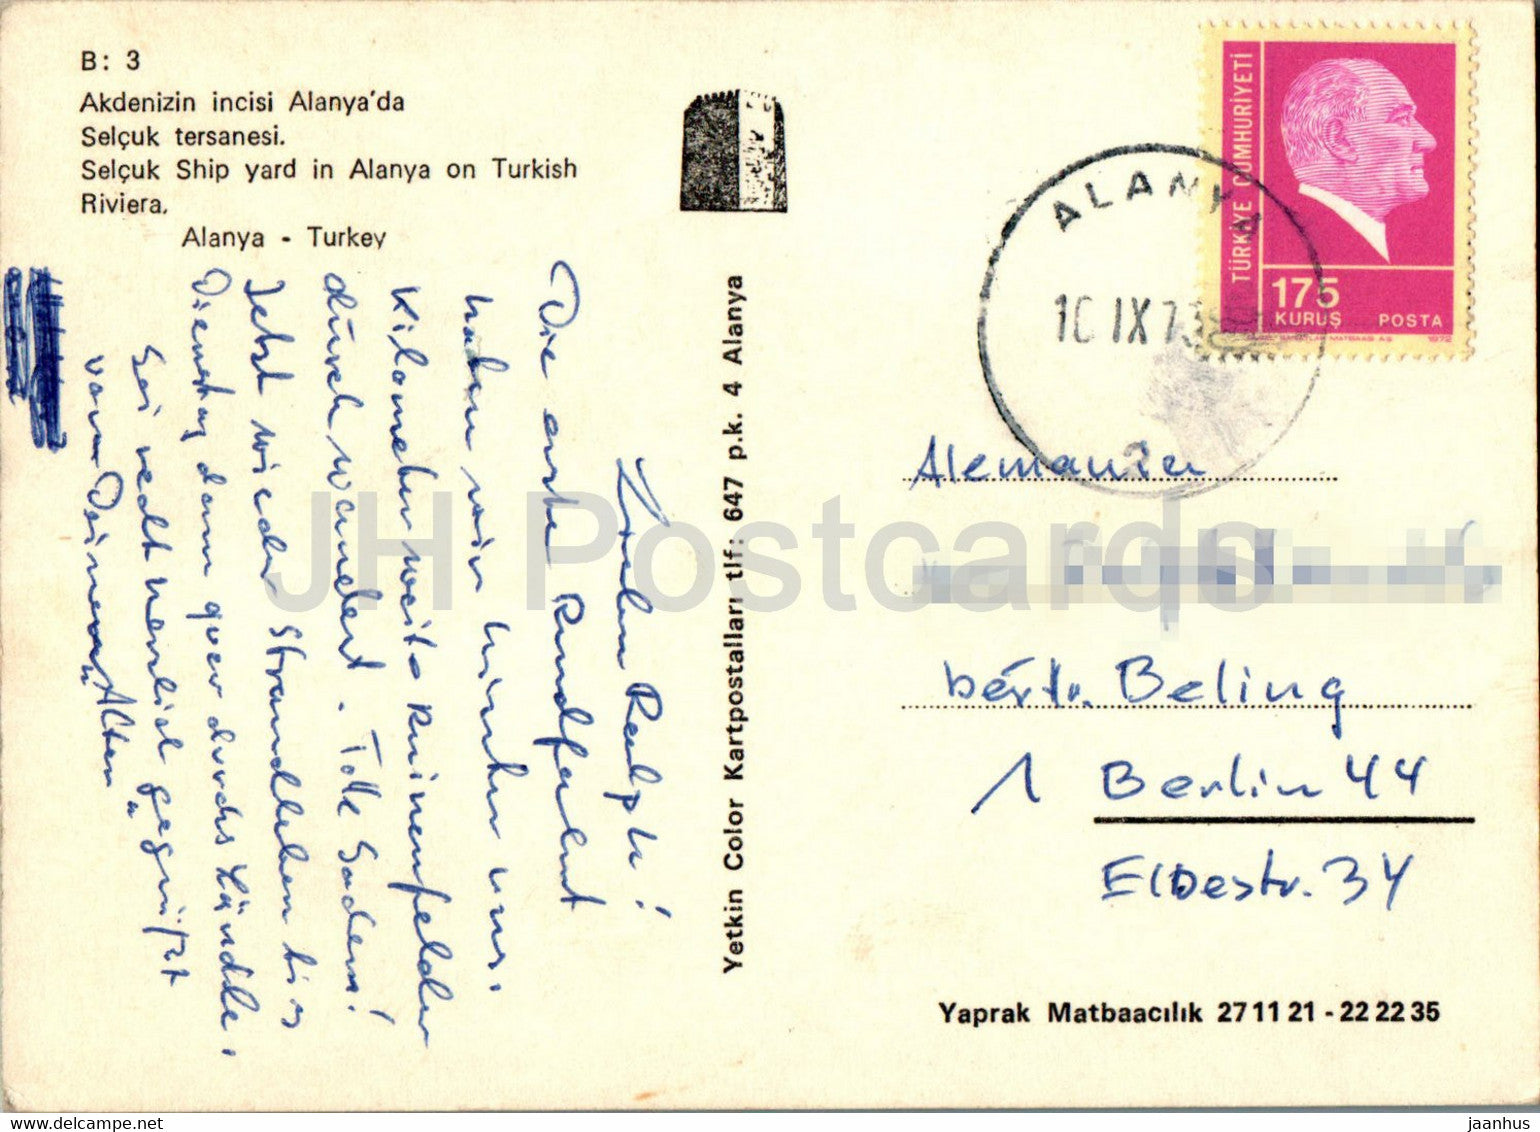 B: 3
Akdenizin incisi Alanya'da
Selçuk tersanesi.
Selçuk Ship yard in Alanya on Turkish
Riviera.
Alanya - Turkey
Lieber Ralph!
Die erste Rundfahrt
haben wir hinter uns.
Kilometer weite Ruinenfelder
durchwandert. Tolle Sachen!
Jetzt wieder Strandleben bis
Dienstag dann quer durchs Ländle.
Sei recht herzlich gegrüßt
von Deinen "Alten"
Yetkin Color Kartpostalları tlf: 647 p.k. 4 Alanya
TÜRKİYE CUMHURİYETİ
175
KURUŞ POSTA
1972
ALANYA
10 IX 73
2
Alemania
Beling
1 Berlin 44
Elbestr. 34
Yaprak Matbaacılık 27 11 21 - 22 22 35
JH Postcards
www.delcampe.net
jaanhus